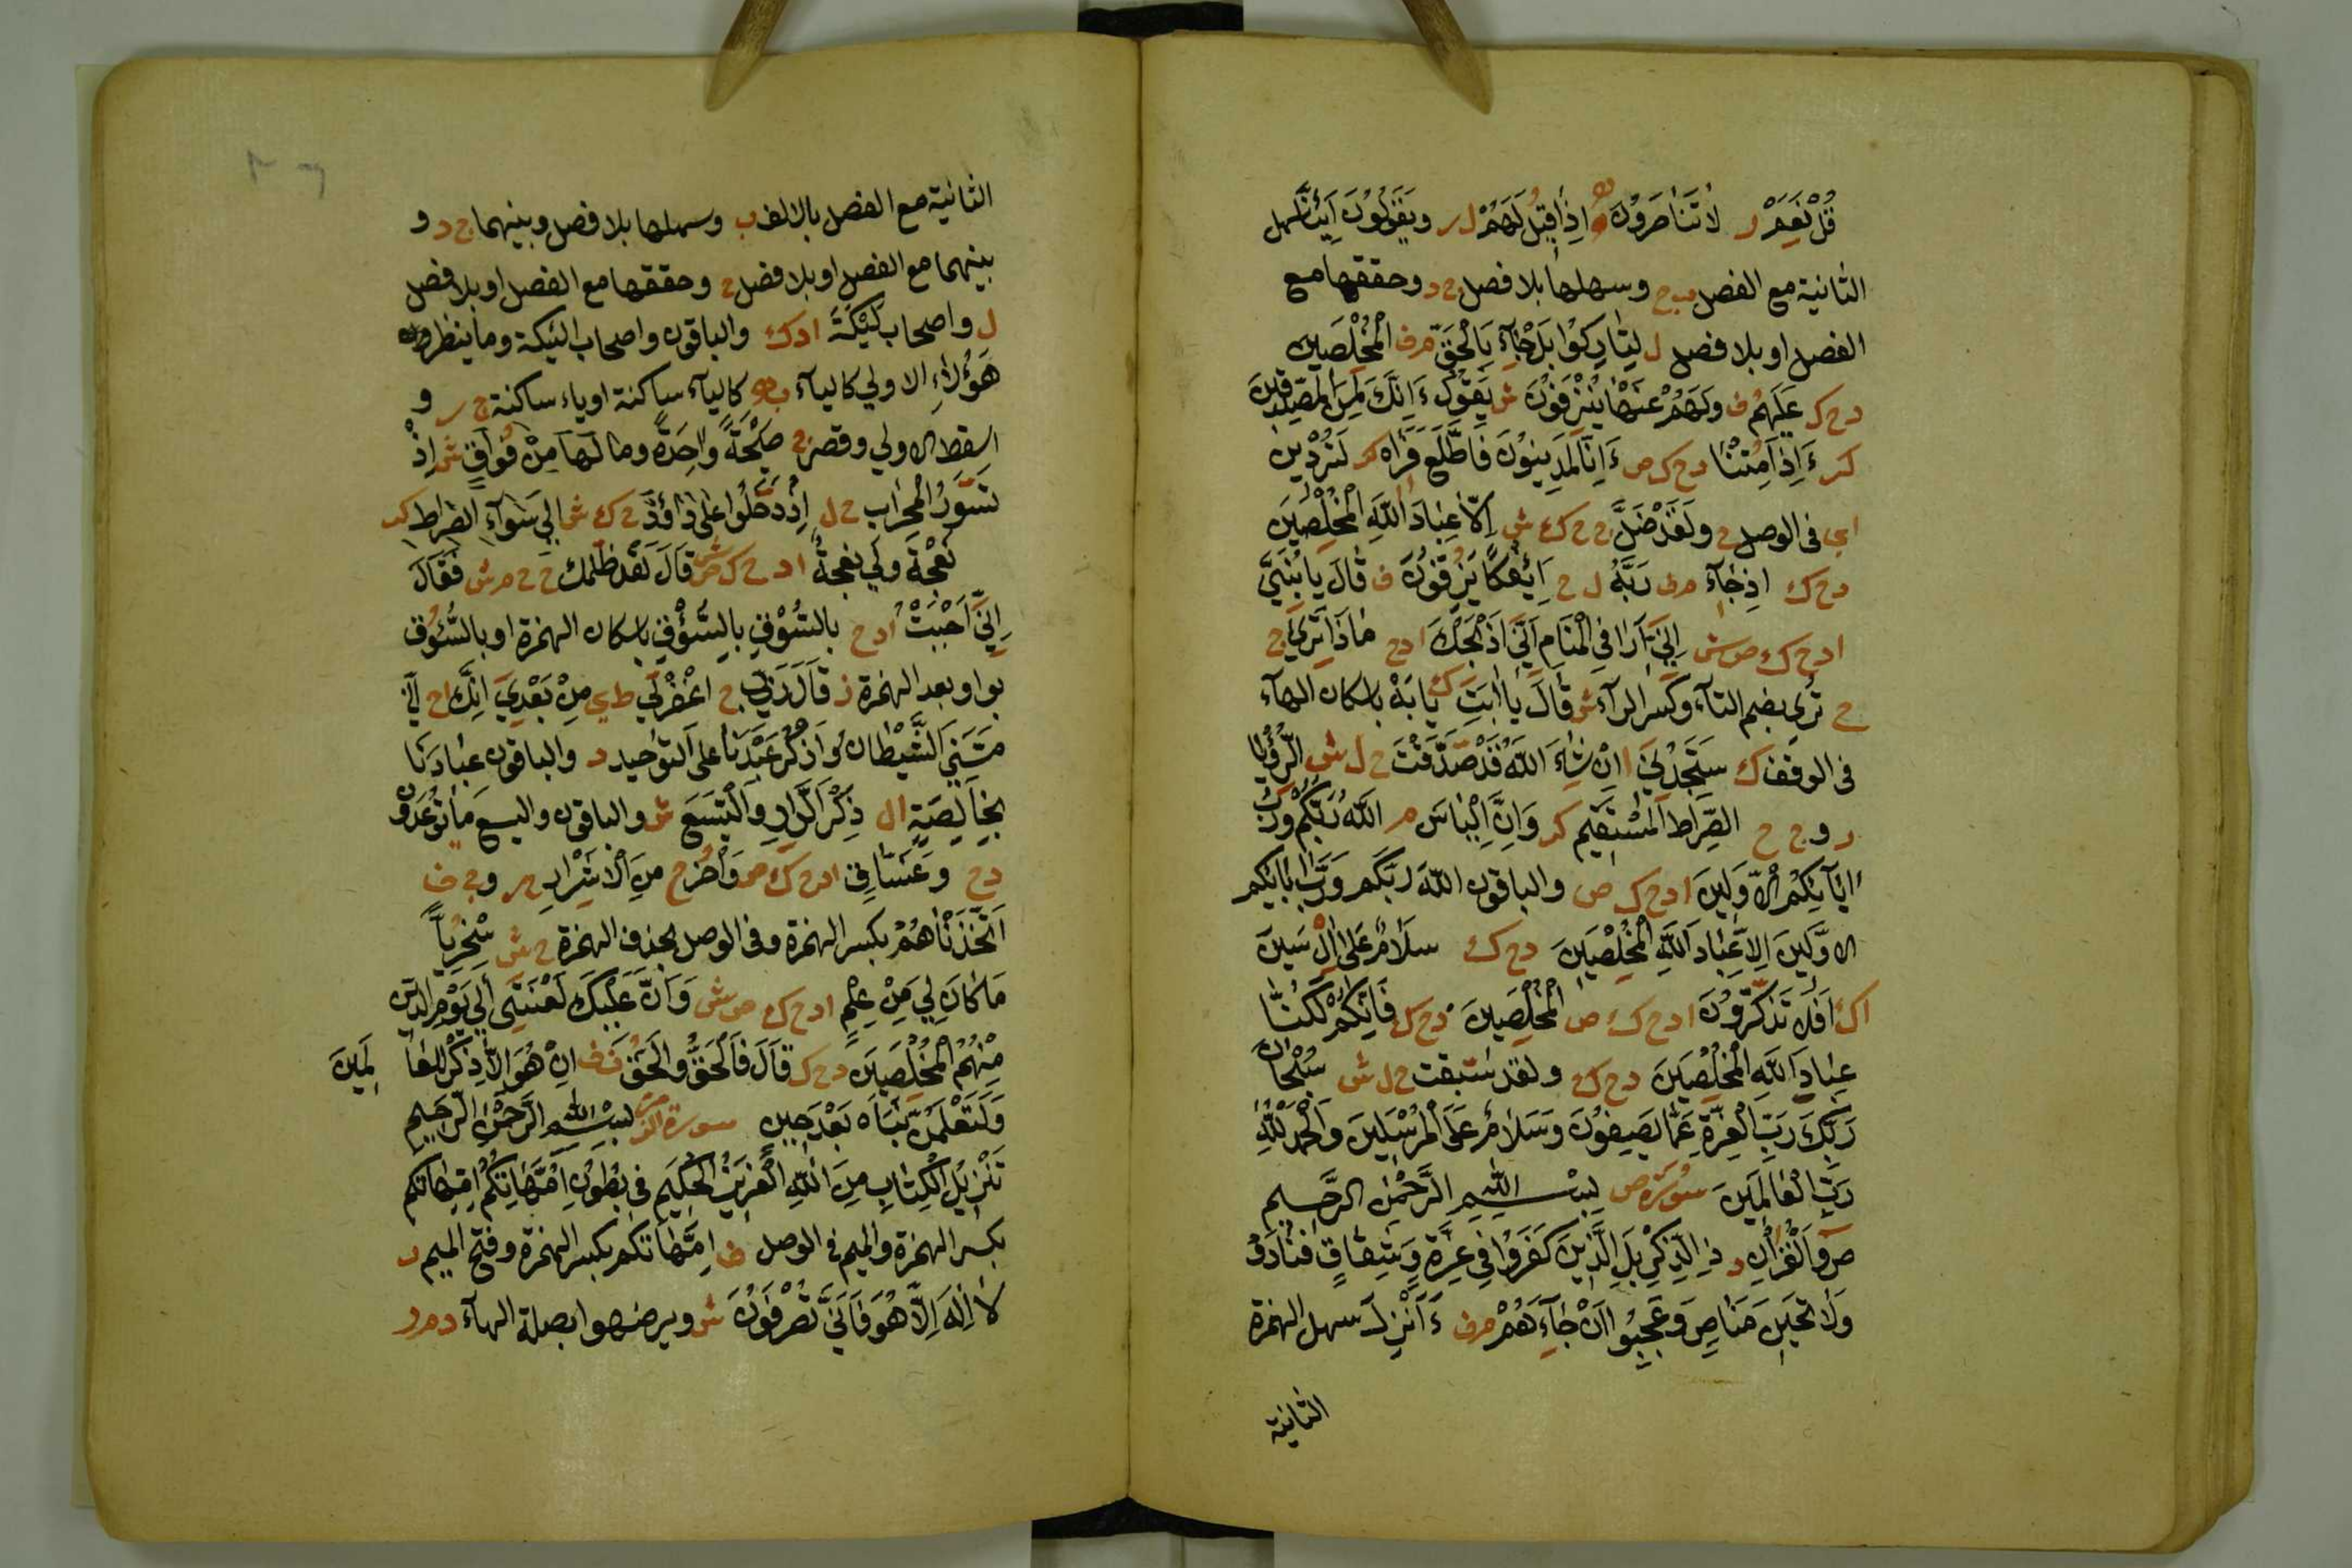 قُلْ نَعَمْ ر لَا تَنَاصَرُونَ ه اِذَا قِيلَ لَهُمْ ل ر وَيَقُولُونَ اَئِنَّا سهل
الثانية مع الفصل ب ح وسهلها بلا فصل ج د وحققها مع
الفصل او بلا فصل ل لَتَارِكُوا بَلْ جَآءَ بِالْحَقِّ مرف الْمُخْلَصِينَ
دح ك عَلَيْهِمْ ف وَلَاهُمْ عَنْهَا يُنْزَفُونَ ش يَقُولُ ءَاِنَّكَ لَمِنَ الْمُصَدِّقِينَ
كر ءَاِذَا مِتْنَا دح ك ص ءَاِنَّا لَمَدِينُونَ فَاطَّلَعَ فَرَاٰهُ كر لَتُرْدِينِ
اى فى الوصل ج وَلَقَدْ ضَلَّ ج ح ك ش اِلَّا عِبَادَ اللّٰهِ الْمُخْلَصِينَ
دح ك اِذْ جَآءَ مرف رَبَّهُ ل ح اَئِفْكًا يَزِفُّونَ ف قَالَ يَا بُنَيَّ
ادح ك ص ش اِنِّي اَرٰى فِي الْمَنَامِ اَنِّي اَذْبَحُكَ ادح مَاذَا تَرٰى ج
ح تُرِي بضم التآء وكسر الرآء ش قَالَ يَا اَبَتِ ك يَا اَبَهْ باسكان الهآء
فى الوقف ك سَتَجِدُنِي ا اِنْ شَآءَ اللّٰهُ قَدْ صَدَّقْتَ ح ل ش الرُّؤْيَا
ر و ج ح الصِّرَاطَ الْمُسْتَقِيمَ كر وَاِنَّ اِلْيَاسَ م اللّٰهُ رَبُّكُمْ وَرَبُّ
اٰبَآئِكُمُ الْاَوَّلِينَ ادح ك ص والباقون اللّٰهَ رَبَّكُمْ وَرَبَّ اٰبَآئِكُمُ
الْاَوَّلِينَ اِلَّا عِبَادَ اللّٰهِ الْمُخْلَصِينَ دح ك سَلَامٌ عَلٰى اٰلْ يَاسِينَ
اك اَفَلَا تَذَكَّرُونَ ادح ك ص الْمُخْلَصِينَ دح ك فَاِنَّكُمْ لَكُنَّا
عِبَادَ اللّٰهِ الْمُخْلَصِينَ دح ك ولقد سبقت ح ل ش سُبْحَانَ
رَبِّكَ رَبِّ الْعِزَّةِ عَمَّا يَصِفُونَ وَسَلَامٌ عَلَى الْمُرْسَلِينَ وَالْحَمْدُ لِلّٰهِ
رَبِّ الْعَالَمِينَ سورة ص بِسْمِ اللّٰهِ الرَّحْمٰنِ الرَّحِيمِ
صٓ وَالْقُرْاٰنِ د ذِي الذِّكْرِ بَلِ الَّذِينَ كَفَرُوا فِي عِزَّةٍ وَشِقَاقٍ فَنَادَوْا
وَلَاتَ حِينَ مَنَاصٍ وَعَجِبُوا اَنْ جَآءَهُمْ مرف ءَاُنْزِلَ سهل الهمزة
الثانية
الثانية مع الفصل بالالف ب وسهلها بلا فصل وبينهما ج د و
بينهما مع الفصل او بلا فصل ح وحققها مع الفصل او بلا فصل
ل واصحاب لَيْكَةَ ادك والباقون واصحاب الئيكة وما ينظر
هَؤُلَاءِ الاولي كاليآء ب ه كاليآء ساكنة او ياء ساكنة ج ر و
اسقط الاولي وقصر ح صَيْحَةً وَاحِدَةً وما لَهَا مِنْ فُوَاقٍ ش اِذْ
تَسَوَّرُوا الْمِحْرَابَ ح ل اِذْ دَخَلُوا عَلٰى دَاوُدَ ح ك ش اِلٰى سَوَآءِ الصِّرَاطِ كر
نَعْجَةً وَلِيَ نَعْجَةٌ ادح ك ص ش قَالَ لَقَدْ ظَلَمَكَ ج ح مرش فَقَالَ
اِنِّي اَحْبَبْتُ ادح بِالسُّوقِ بِالسُّؤْقِ باسكان الهمزة او بِالسُّؤُوقِ
بواو بعد الهمزة ز قَالَ رَبِّ ح اغْفِرْ لِي ط ى مِنْ بَعْدِيَ اِنَّكَ اح اَنِّي
مَسَّنِيَ الشَّيْطَانُ وَاذْكُرْ عَبْدَنَا على التوحيد د والباقون عِبَادَنَا
بِخَالِصَةِ ال ذِكْرَى الدَّارِ وَالْيَسَعَ ش والباقون واليسع مَا تُوعَدُونَ
دح وَغَسَاقٌ ادح ك ص وَاُخَرُ ح مِنَ الْاَشْرَارِ مر و ج ف
اَتَّخَذْنَاهُمْ بكسر الهمزة وفى الوصل بحذف الهمزة ح ش سُخْرِيًّا
مَا كَانَ لِي مِنْ عِلْمٍ ادح ك ص ش وَاَنَّ عَلَيْكَ لَعْنَتِي اِلٰى يَوْمِ الدِّينِ
مِنْهُمُ الْمُخْلَصِينَ دح ك قَالَ فَالْحَقُّ وَالْحَقَّ ن ف اِنْ هُوَ اِلَّا ذِكْرٌ لِلْعَا لَمِينَ
وَلَتَعْلَمُنَّ نَبَاَهُ بَعْدَ حِينٍ سورة الزمر بِسْمِ اللّٰهِ الرَّحْمٰنِ الرَّحِيمِ
تَنْزِيلُ الْكِتَابِ مِنَ اللّٰهِ الْعَزِيزِ الْحَكِيمِ فِي بُطُونِ اُمَّهَاتِكُمْ اِمِّهَاتِكُمْ
بكسر الهمزة والميم فى الوصل ف اِمَّهَاتِكُمْ بكسر الهمزة وفتح الميم ر
لَا اِلٰهَ اِلَّا هُوَ فَاَنّٰى تُصْرَفُونَ ش ويرضهوا بصلة الهآء دمر